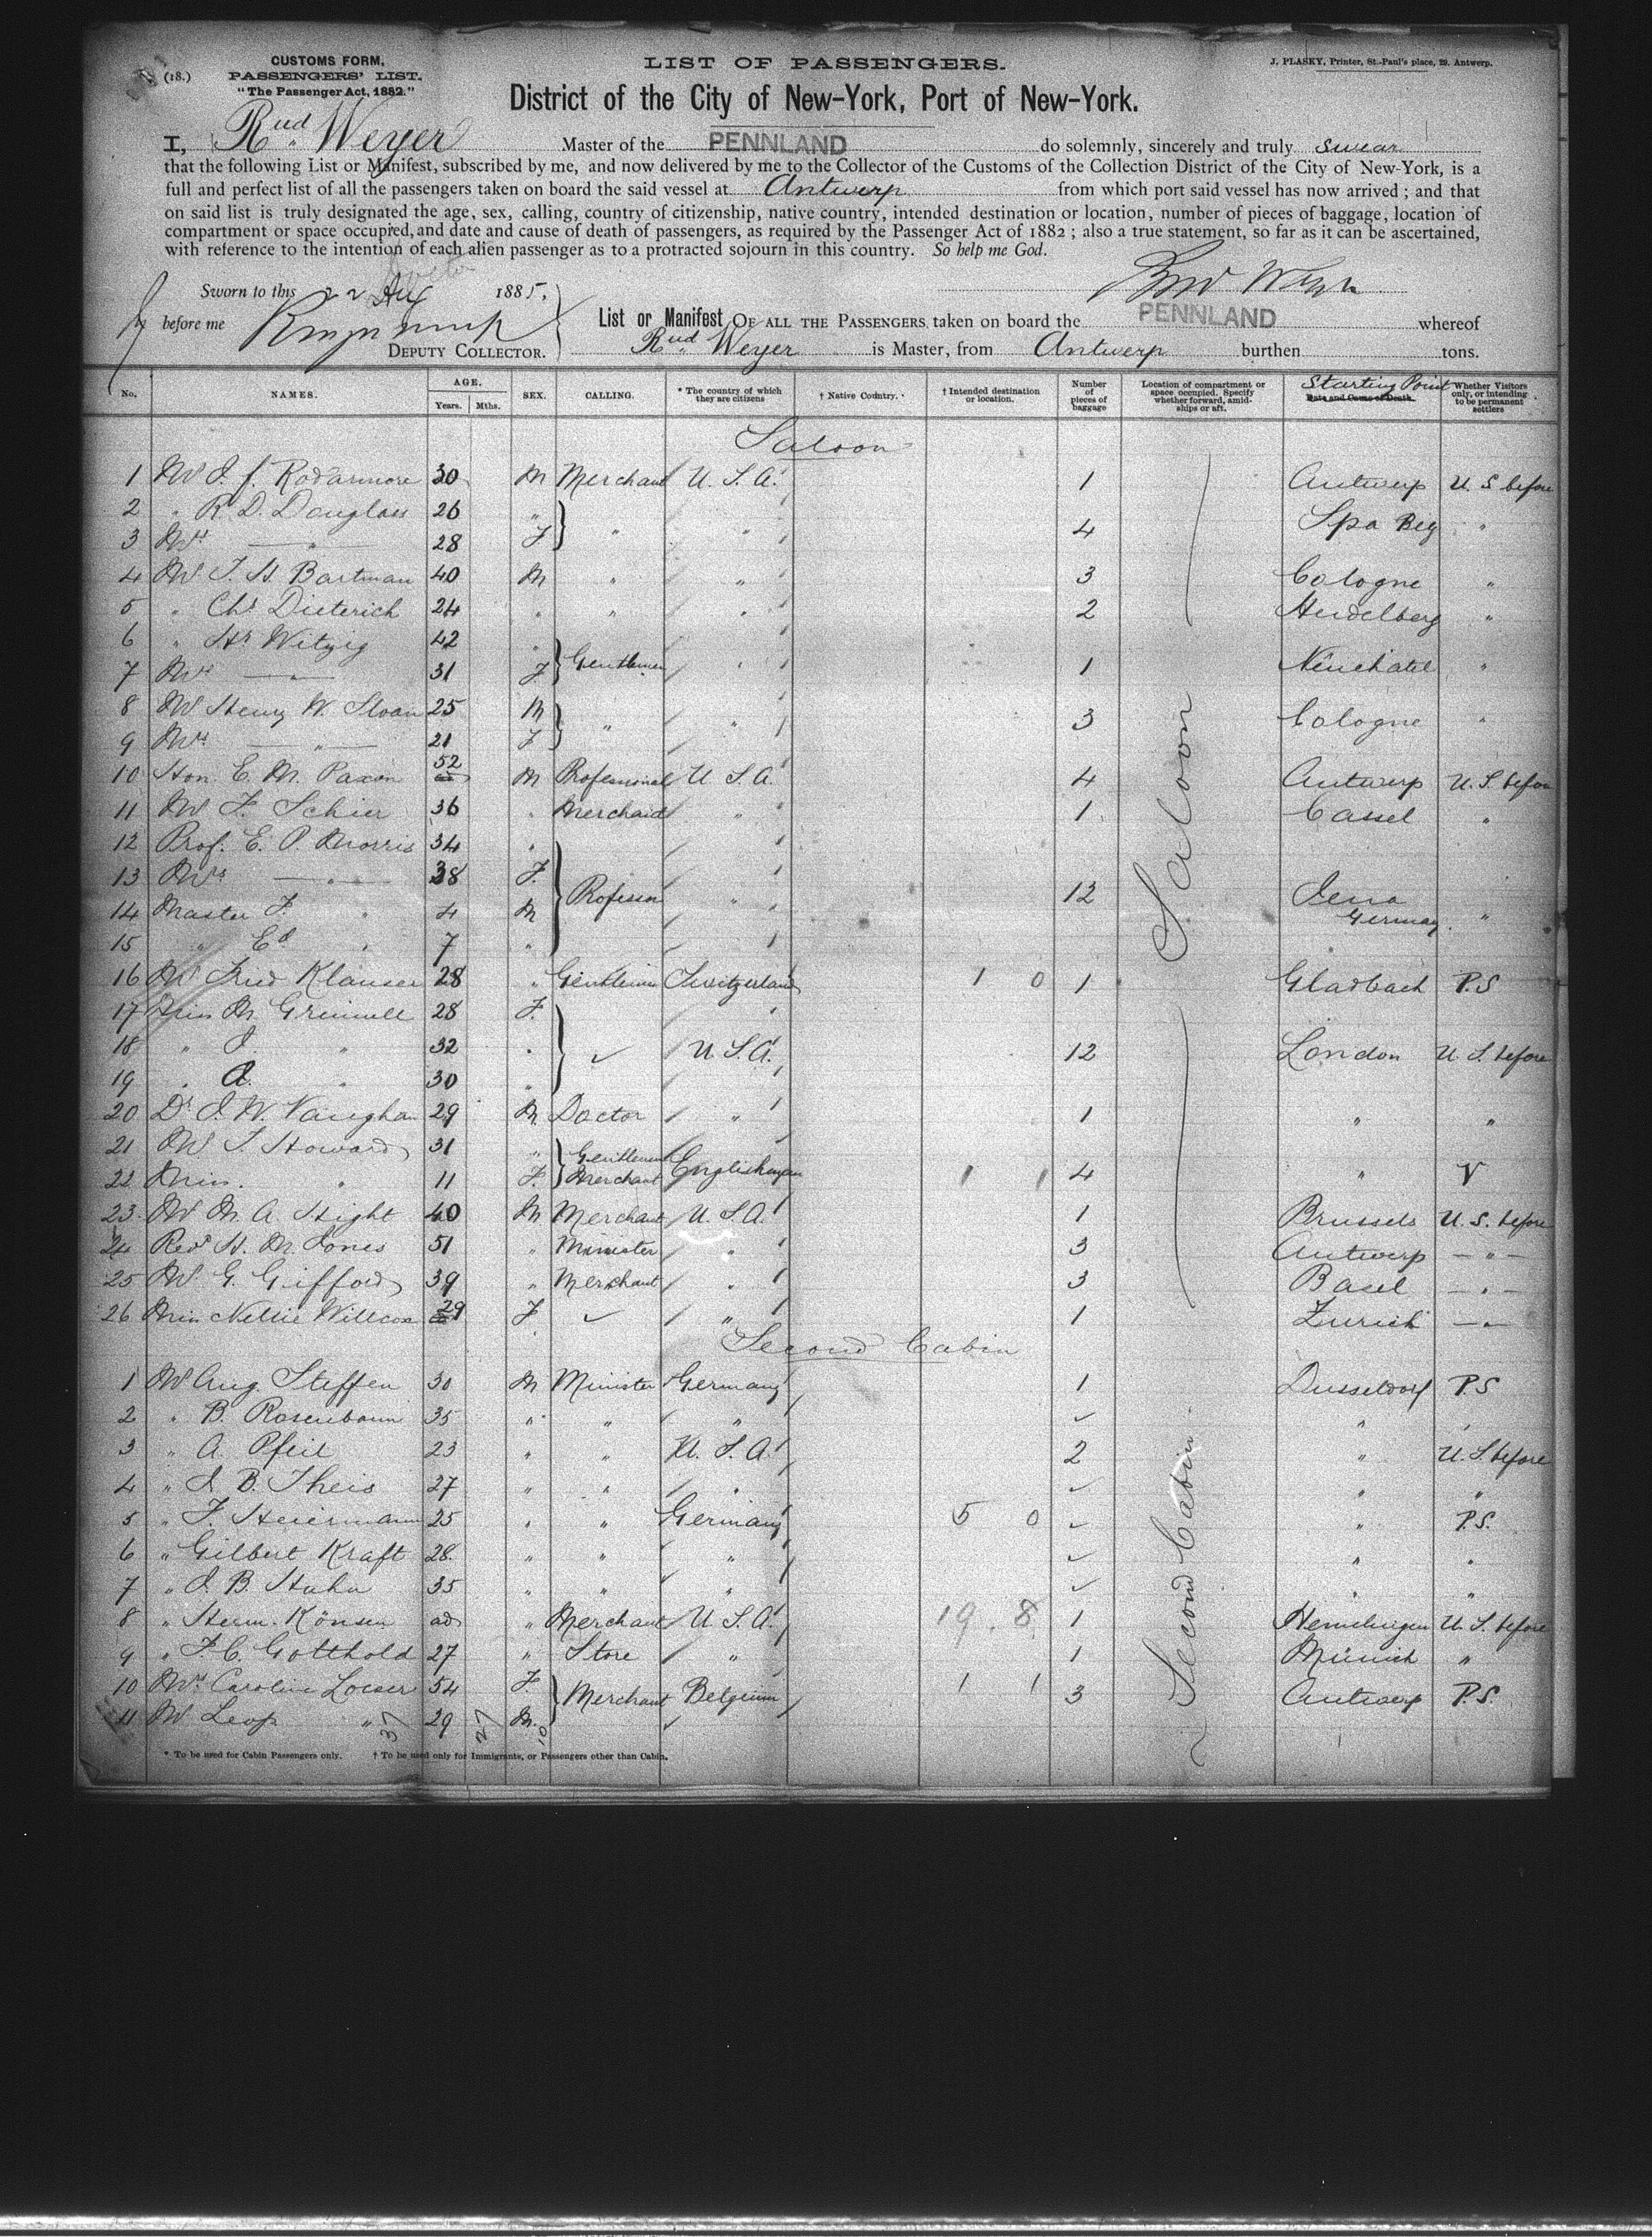 (18.)
CUSTOMS FORM,
PASSENGERS' LIST.
"The Passenger Act, 1882."
LIST OF PASSENGERS.
J. PLASKY, Printer, St.-Paul's place, 29. Antwerp.
District of the City of New-York, Port of New-York.
I, Rud Weyer Master of the PENNLAND do solemnly, sincerely and truly swear
that the following List or Manifest, subscribed by me, and now delivered by me to the Collector of the Customs of the Collection District of the City of New-York, is a
full and perfect list of all the passengers taken on board the said vessel at Antwerp from which port said vessel has now arrived ; and that
on said list is truly designated the age, sex, calling, country of citizenship, native country, intended destination or location, number of pieces of baggage, location of
compartment or space occupied, and date and cause of death of passengers, as required by the Passenger Act of 1882 ; also a true statement, so far as it can be ascertained,
with reference to the intention of each alien passenger as to a protracted sojourn in this country. So help me God.
Sworn to this 22 Aug 1885,
before me
DEPUTY COLLECTOR.
Rud Weyer
List or Manifest OF ALL THE PASSENGERS taken on board the PENNLAND whereof
Rud Weyer is Master, from Antwerp burthen tons.
No. NAMES. AGE. Years. Mths. SEX. CALLING. * The country of which they are citizens † Native Country. † Intended destination or location. Number of pieces of baggage Location of compartment or space occupied. Specify whether forward, amidships or aft. Starting Point Date and Cause of Death. Whether Visitors only, or intending to be permanent settlers
Saloon
1 Mr J. f. Rodarmore 30 M Merchant U. S. A. 1 Antwerp U. S before
2 " R. D. Douglass 26 " " " 4 Spa Belg "
3 Mrs " 28 F
4 Mr T. H. Bartman 40 M " " 3 Cologne "
5 " Chs Dieterich 24 " " " 2 Heidelberg "
6 " Hr Witzig 42 " Gentleman " 1 Neuchatel "
7 Mrs " 31 F
8 Mr Henry W. Sloan 25 M " " 3 Cologne "
9 Mrs " 21 F
10 Hon. E. M. Paxon 52 M Professional U. S. A. 4 Antwerp U. S before
11 Mr F. Schier 36 " Merchand " 1 Cassel "
12 Prof. E. P. Morris 34 "
13 Mrs " 38 F. Professor " 12 Jena Germany "
14 Master F. " 4 M
15 " Ed " 7 "
16 Mr Fried Klauser 28 " Gentleman Switzerland 1 0 1 Gladbach P.S
17 Miss M. Grinnell 28 F.
18 " J. " 32 " U. S. A. 12 London U. S. before
19 " A. " 30 "
20 Dr J. W. Vaughan 29 M. Doctor " 1 " "
21 Mr T. Howard 31 " Gentleman
22 Miss. " 11 F. Merchant Englishman 1 1 4 " V
23 Mr M. A. Hight 40 M Merchant U. S. A. 1 Brussels U. S. before
24 Revd H. M. Jones 51 " Minister " 3 Antwerp "
25 Mr G. Gifford 39 " Merchant " 3 Basel "
26 Miss Nellie Willcox 29 F " 1 Zurich "
Saloon
Second Cabin
1 Mr Aug. Steffen 30 M Minister Germany 1 Dusseldorf P.S
2 " B. Rosenbaum 35 " " " " "
3 " A. Pfeil 23 " " U. S. A. 2 " U. S. before
4 " J. B. Theis 27 " " " " "
5 " F. Heiermann 25 " " Germany 5 0 " P.S.
6 " Gilbert Kraft 28. " " " " "
7 " J. B. Hahn 35 " " " " "
8 " Herm. Könsen ad " Merchant U. S. A. 19. 8 1 U. S. before
9 " F. C. Gotthold 27 " Store " 1 Münich "
10 Mrs Caroline Loeser 54 F. Merchant Belgium 1 1 3 Antwerp P.S.
11 Mr Leop " 29 M.
37 27 10
Second Cabin
* To be used for Cabin Passengers only. † To be used only for Immigrants, or Passengers other than Cabin.